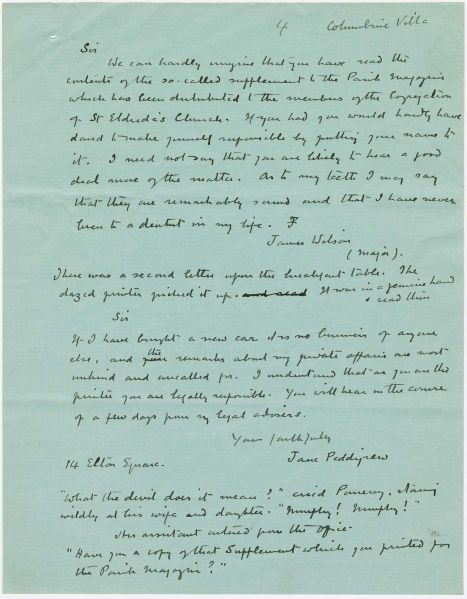 4 Columbine Villa
Sir
We can hardly imagine that you have read the
contents of the so-called supplement to the Parish Magazine
which has been distributed to the members of the Congregation
of St Eldreda's Church. If you had you would hardly have
dared to make yourself responsible by putting your name to
it. I need not say that you are likely to hear a good
deal more of the matter. As to my teeth I may say
that they are remarkably sound and that I have never
been to a dentist in my life.
James Wilson
(Major).
There was a second letter upon the breakfast table. The
dazed printer picked it up. and read It was in a feminine hand
& read thus
Sir
If I have bought a new car it is no business of anyone
else, and the remarks about my private affairs are most
unkind and uncalled for. I understand that as you are the
printer you are legally responsible. You will hear in the course
of a few days from my legal advisers.
Yours faithfully
14 Elton Square. Jane Peddigrew
"What the devil does it mean?" cried Pomeroy, staring
wildly at his wife and daughter. "Murphy! Murphy!"
His assistant entered from the office.
"Have you a copy of that Supplement which you printed for
the Parish Magazine?"